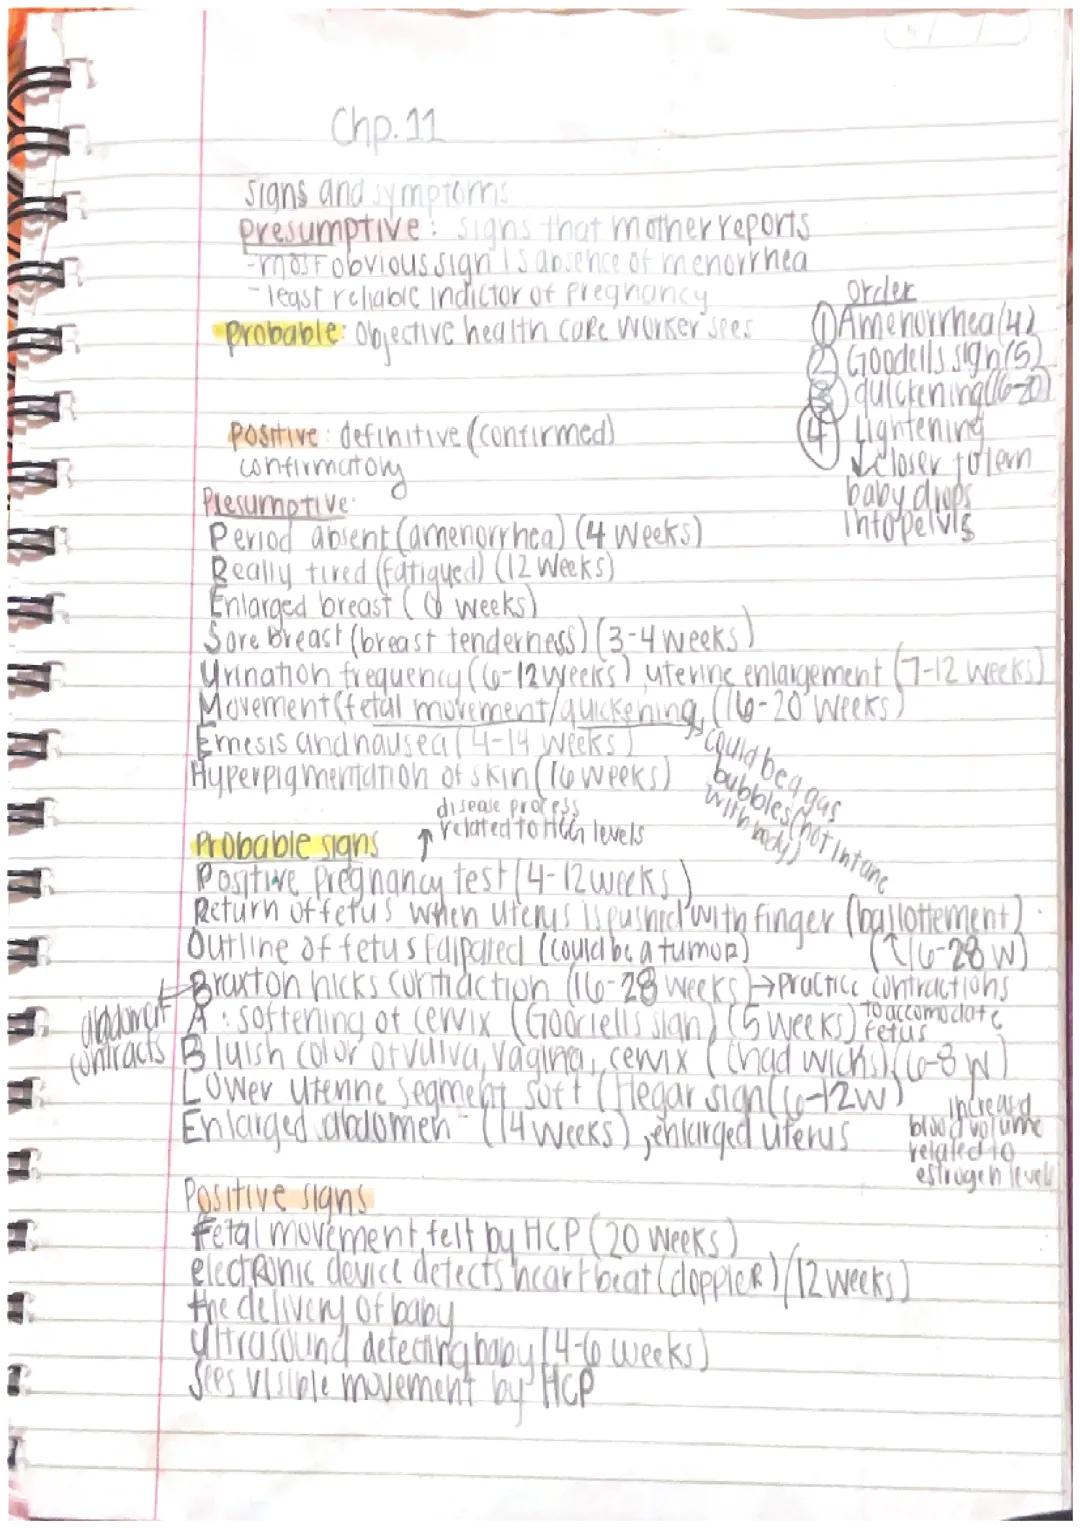 Chp. 11
signs and symptoms
Presumptive: signs that mother reports
-most obvious sign is absence of menorrhea
-least reliable indictor of pregnancy
Probable: Objective health care worker sees
Order
① Amenorrhea (4)
② Goodells sign (5)
③ quickening (16-20)
④ Lightening
↓ closer to term
baby drops
into pelvis
Positive: definitive (confirmed)
confirmatory
Presumptive:
Period absent (amenorrhea) (4 weeks)
Really tired (fatigued) (12 weeks)
Enlarged breast (6 weeks)
Sore Breast (breast tenderness) (3-4 weeks)
Urination frequency (6-12 weeks) uterine enlargement (7-12 weeks)
Movement (fetal movement/quickening, (16-20 weeks)
Emesis and nausea (4-14 weeks)
Hyperpigmentation of skin (16 weeks)
could be a gas
bubbles (not in tune
with body)
disease process
↑ related to HCG levels
Probable signs
Positive pregnancy test (4-12 weeks)
Return of fetus when uterus is pushed with finger (ballottement)
(↑ 16-28 w)
Outline of fetus (could be a tumor)
Braxton hicks contraction (16-28 weeks) → Practice contractions
abdoment
contracts
A: softening of cervix (Goodells sign) (5 weeks) to accomodate
fetus
Bluish color of vulva, vagina, cervix (Chad wicks) (6-8 w)
Lower uterine segment soft (Hegar sign (6-12w)
increased
blood volume
related to
estrogen level
Enlarged abdomen - (14 weeks), enlarged uterus
Positive signs
Fetal movement felt by HCP (20 weeks)
electRonic device detects heartbeat (doppleR) (12 weeks)
the delivery of baby
Ultrasound detecting baby (4-6 weeks)
Sees visible movement by HCP